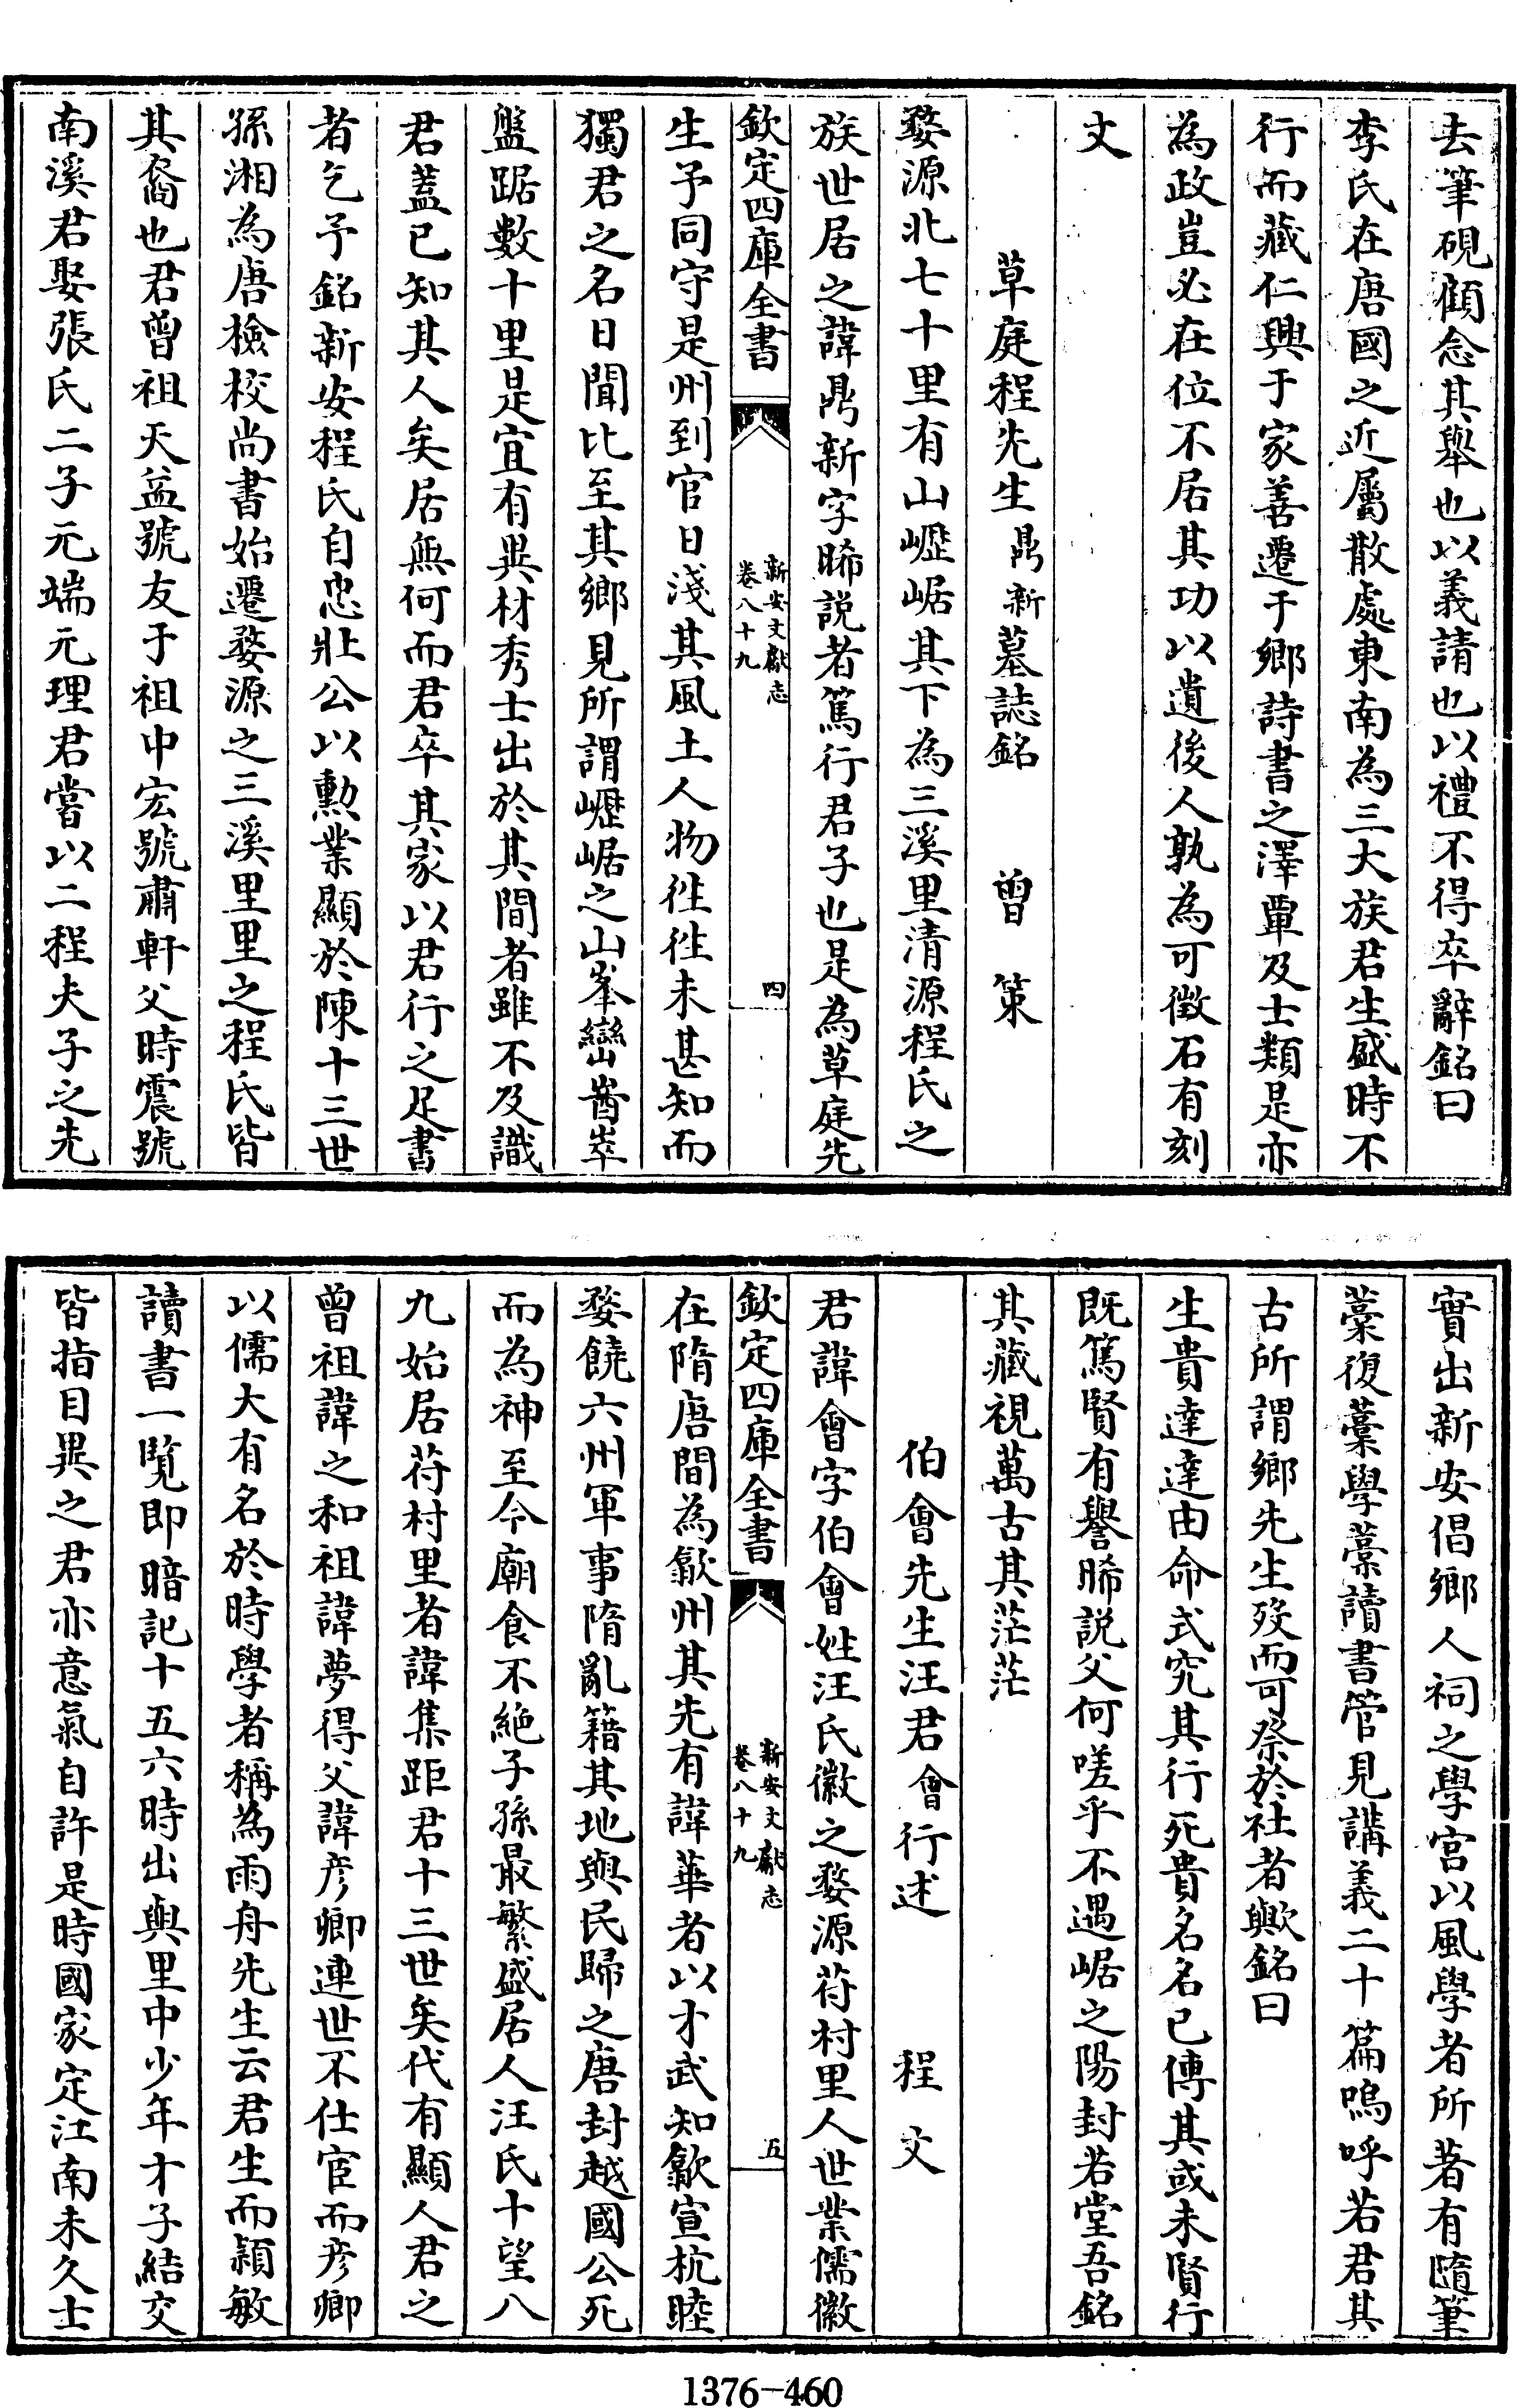 去筆硯顧念其舉也以義請也以禮不得卒辭銘曰
李氏在唐國之近屬散處東南為三大族君生盛時不
行而藏仁興于家善遷于鄉詩書之澤覃及士類是亦
為政豈必在位不居其功以遺後人孰為可徵石有刻
文
草庭程先生鼎新墓誌銘　曾策
婺源北七十里有山嶇崌其下為三溪里清源程氏之
族世居之諱鼎新字晞說者篤行君子也是為草庭先
欽定四庫全書　新安文獻志　卷八十九　四
生予同守是州到官日淺其風土人物徃徃未甚知而
獨君之名日聞比至其鄉見所謂嶇崌之山峯巒崷崒
盤踞數十里是宜有異材秀士出於其間者雖不及識
君蓋已知其人矣居無何而君卒其家以君行之足書
者乞予銘新安程氏自忠壯公以勲業顯於陳十三世
孫湘為唐檢校尚書始遷婺源之三溪里里之程氏皆
其裔也君曾祖天益號友于祖中宏號肅軒父時震號
南溪君娶張氏二子元端元理君嘗以二程夫子之先
實出新安倡鄉人祠之學宮以風學者所著有隨筆
藁復藁學藁讀書管見講義二十篇嗚呼若君其
古所謂鄉先生歿而可祭於社者歟銘曰
生貴達達由命式究其行死貴名名已傳其或未賢行
既篤賢有譽晞說父何嗟乎不遇崌之陽封若堂吾銘
其藏視萬古其茫茫
伯會先生汪君會行述　程文
君諱會字伯會姓汪氏徽之婺源苻村里人世業儒徽
欽定四庫全書　新安文獻志　卷八十九　五
在隋唐間為歙州其先有諱華者以才武知歙宣杭睦
婺饒六州軍事隋亂籍其地與民歸之唐封越國公死
而為神至今廟食不絶子孫最繁盛居人汪氏十望八
九始居苻村里者諱集距君十三世矣代有顯人君之
曾祖諱之和祖諱夢得父諱彥卿連世不仕宦而彥卿
以儒大有名於時學者稱為雨舟先生云君生而穎敏
讀書一覽即暗記十五六時出與里中少年才子結交
皆指目異之君亦意氣自許是時國家定江南未久士
1376-460